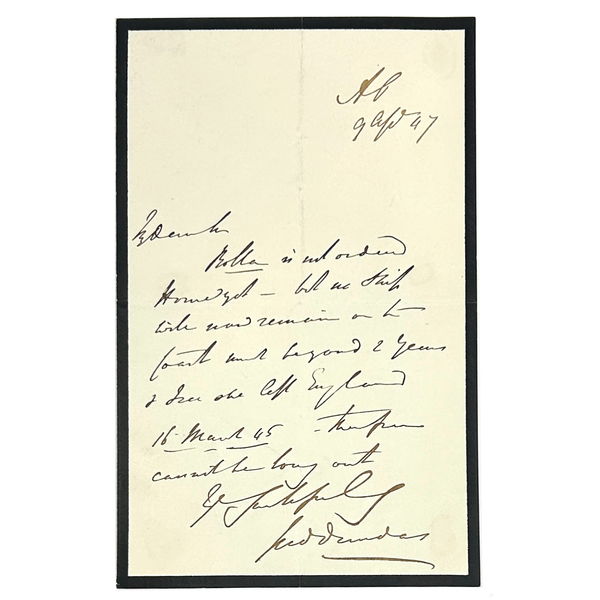 Ad
9 Apl 47
My dear Sir
Rolla is not ordered
Home yet – but no Ship
will now remain on the
Coast much beyond 2 Years
& I see she left England
16 March 45 – therefore
cannot be long out
Yrs faithfully
Dundas